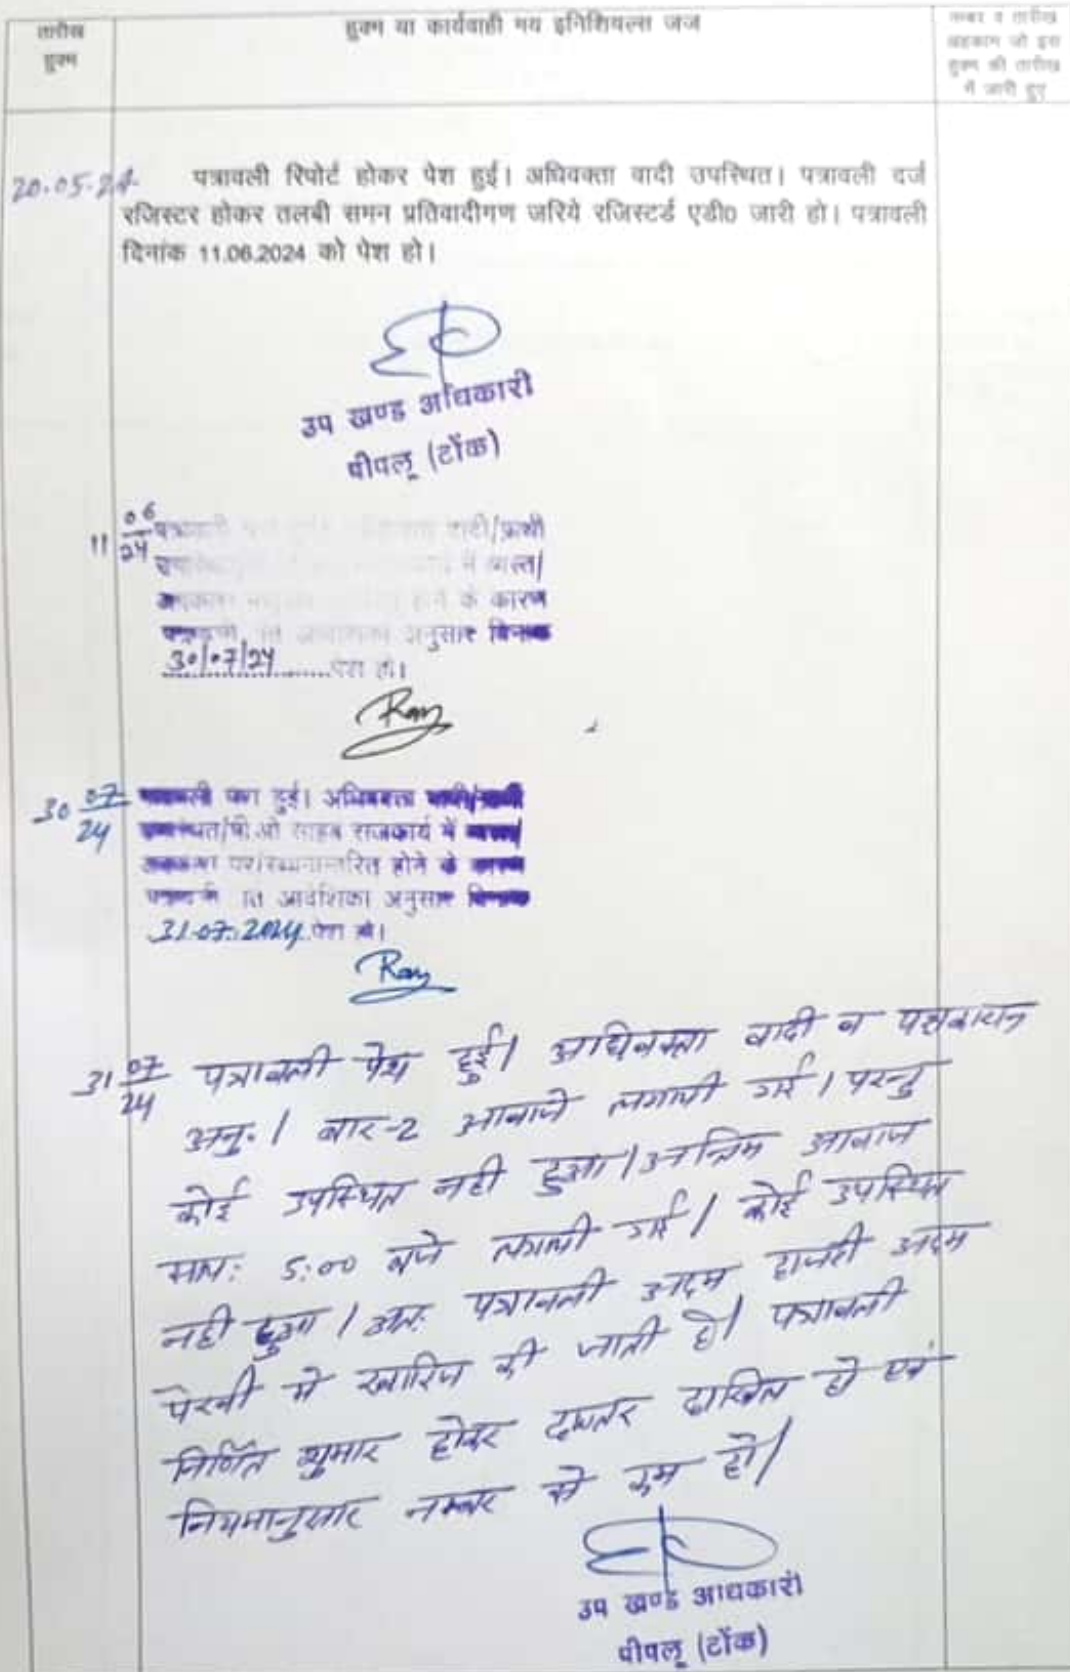 तारीख
हुक्म
हुक्म या कार्यवाही मय इनिशियल्स जज
नम्बर व तारीख
अहकाम जो इस
हुक्म की तारीख
में जारी हुए
20.05.24 पत्रावली रिपोर्ट होकर पेश हुई। अधिवक्ता वादी उपस्थित। पत्रावली दर्ज
रजिस्टर होकर तलबी समन प्रतिवादीगण जरिये रजिस्टर्ड एडी0 जारी हो। पत्रावली
दिनांक 11.06.2024 को पेश हो।
उप खण्ड अधिकारी
पीपलू (टोंक)
11 06/24 वादी/प्रार्थी
में व्यस्त/
होने के कारण
अनुसार दिनांक
30/07/24 पेश हो।
Ray
30 07/24 पत्रावली पेश हुई। अधिवक्ता
पी.ओ साहब राजकार्य में
पर/स्थानान्तरित होने के कारण
आदेशिका अनुसार दिनांक
31.07.2024 पेश हो।
Ray
31 07/24 पत्रावली पेश हुई। अधिवक्ता वादी व पक्षकारान
अनु.। बार-2 आवाजे लगायी गई। परन्तु
कोई उपस्थित नही हुआ। अन्तिम आवाज
सायं: 5:00 बजे लगायी गई। कोई उपस्थित
नही हुआ। अतः पत्रावली अदम हाजरी अदम
पैरवी मे खारिज की जाती है। पत्रावली
निर्णित शुमार होकर दफ्तर दाखिल हो एवं
नियमानुसार नम्बर से कम हो।
उप खण्ड अधिकारी
पीपलू (टोंक)